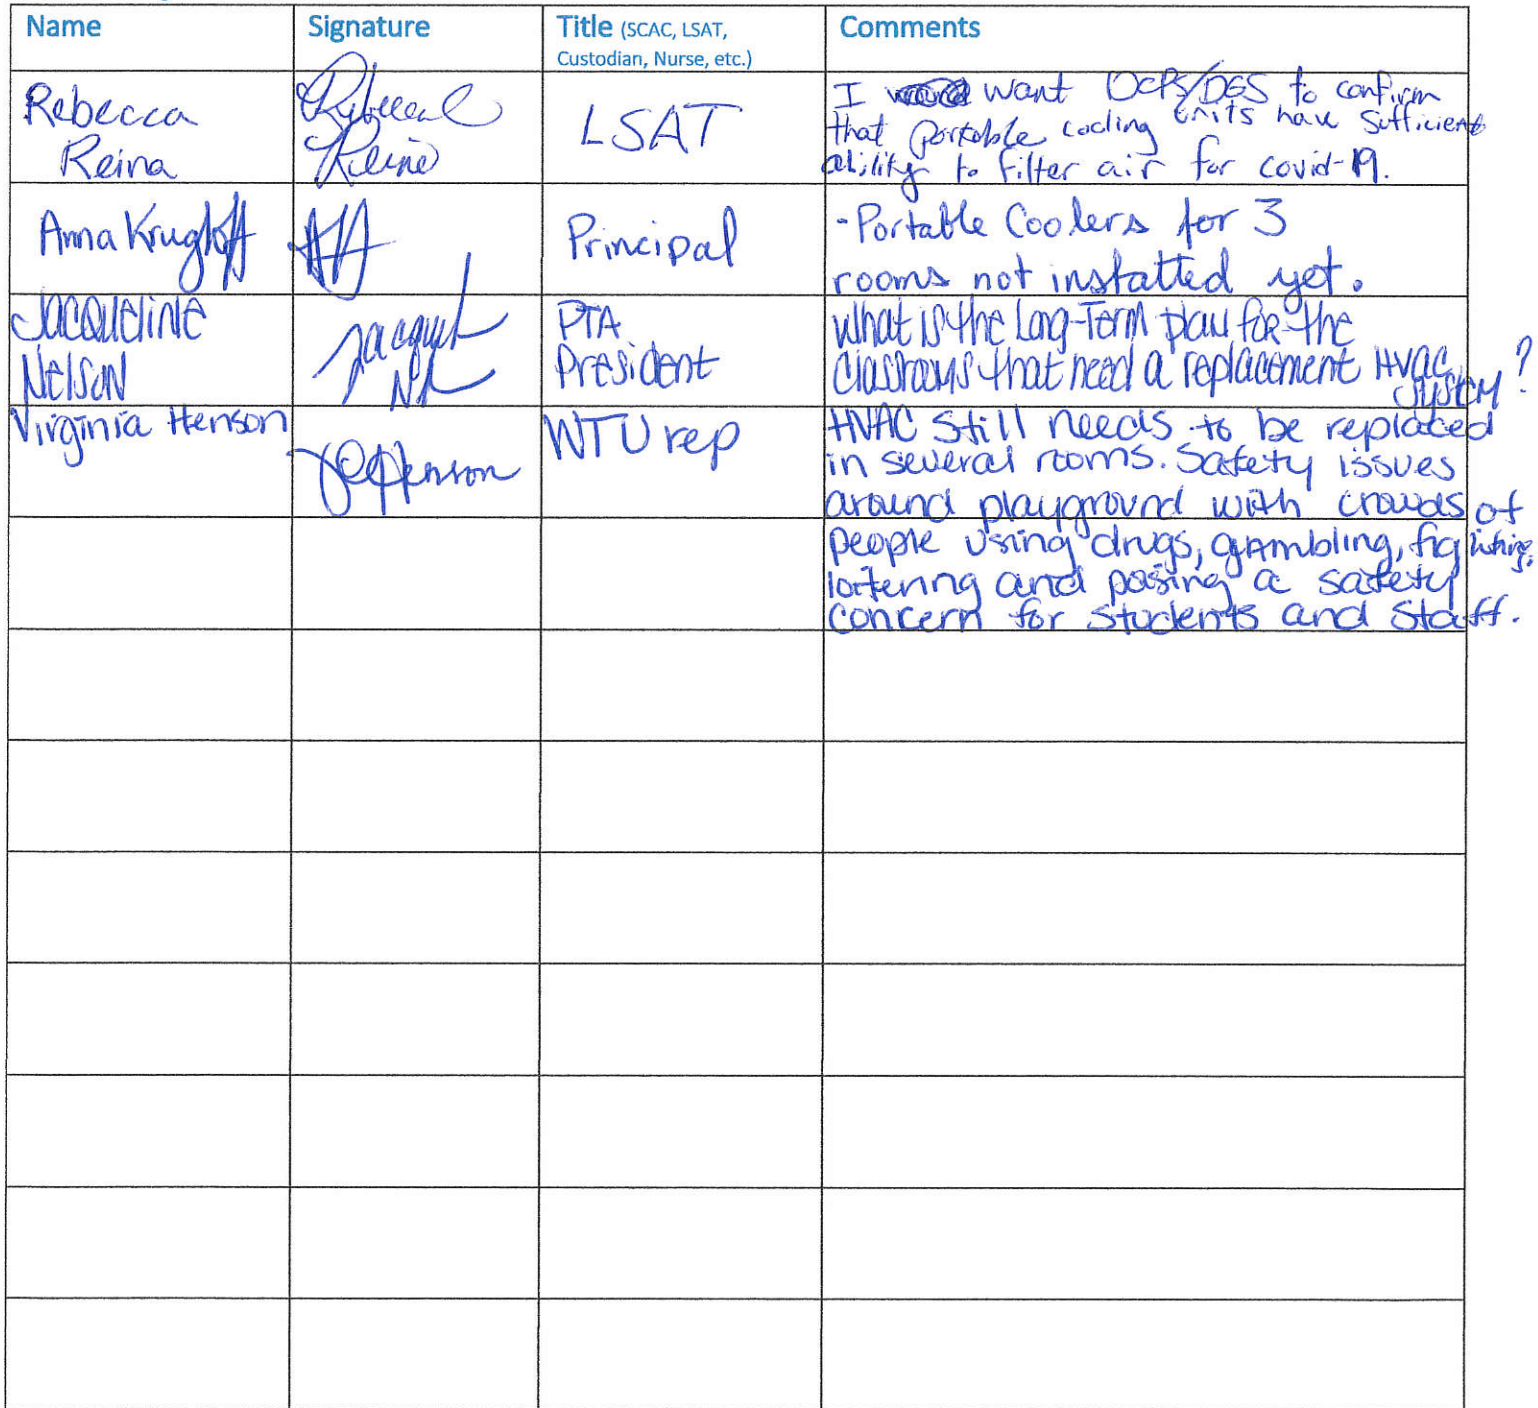 Name Signature Title (SCAC, LSAT, Comments
Custodian, Nurse, etc.)
Rebecca
Reina
Rebecca
Reina
LSAT
I want DCPS/DGS to confirm
that portable cooling units have sufficient
ability to filter air for covid-19.
Anna Krughoff
Principal
-Portable Coolers for 3
rooms not installed yet.
Jacqueline
Nelson
PTA
President
What is the Long-Term plan for the
classrooms that need a replacement HVAC
system?
Virginia Henson
WTU rep
HVAC Still needs to be replaced
in several rooms. Safety issues
around playground with crowds of
people using drugs, gambling, fighting,
loitering and posing a safety
concern for students and staff.